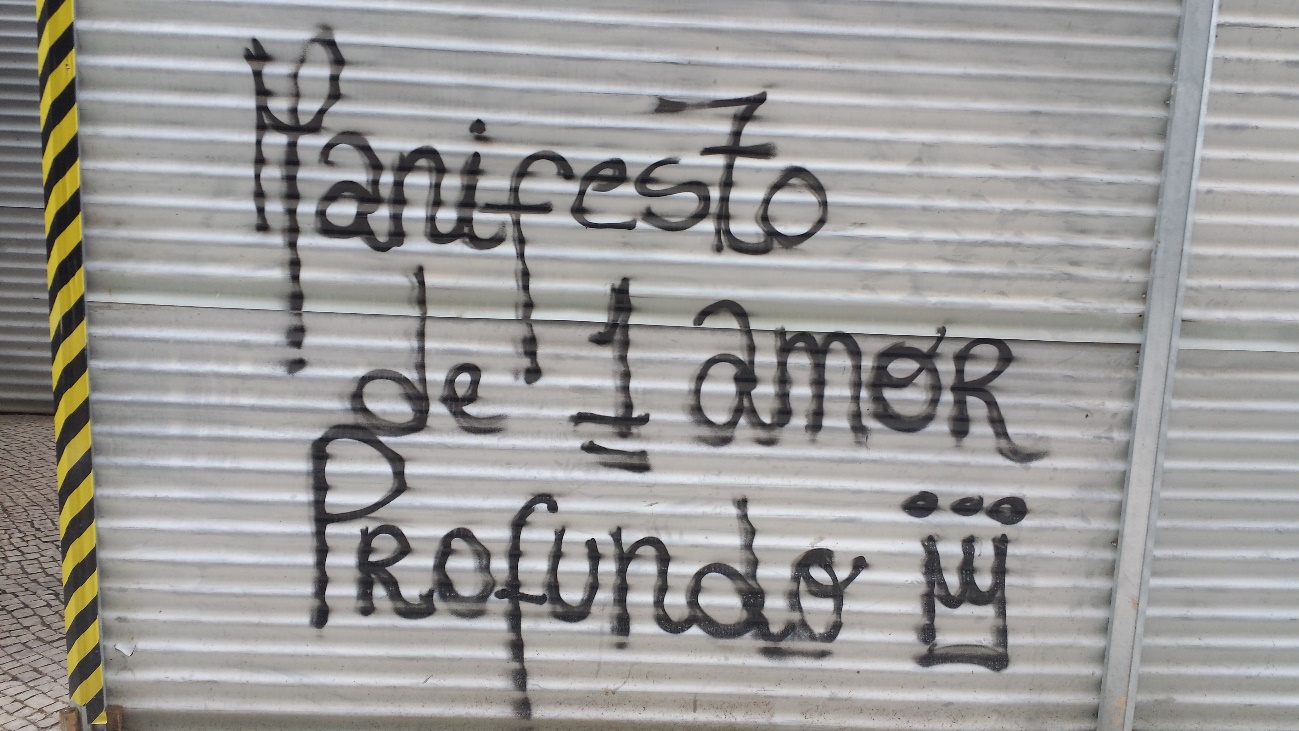 Manifesto
de 1 amor
Profundo